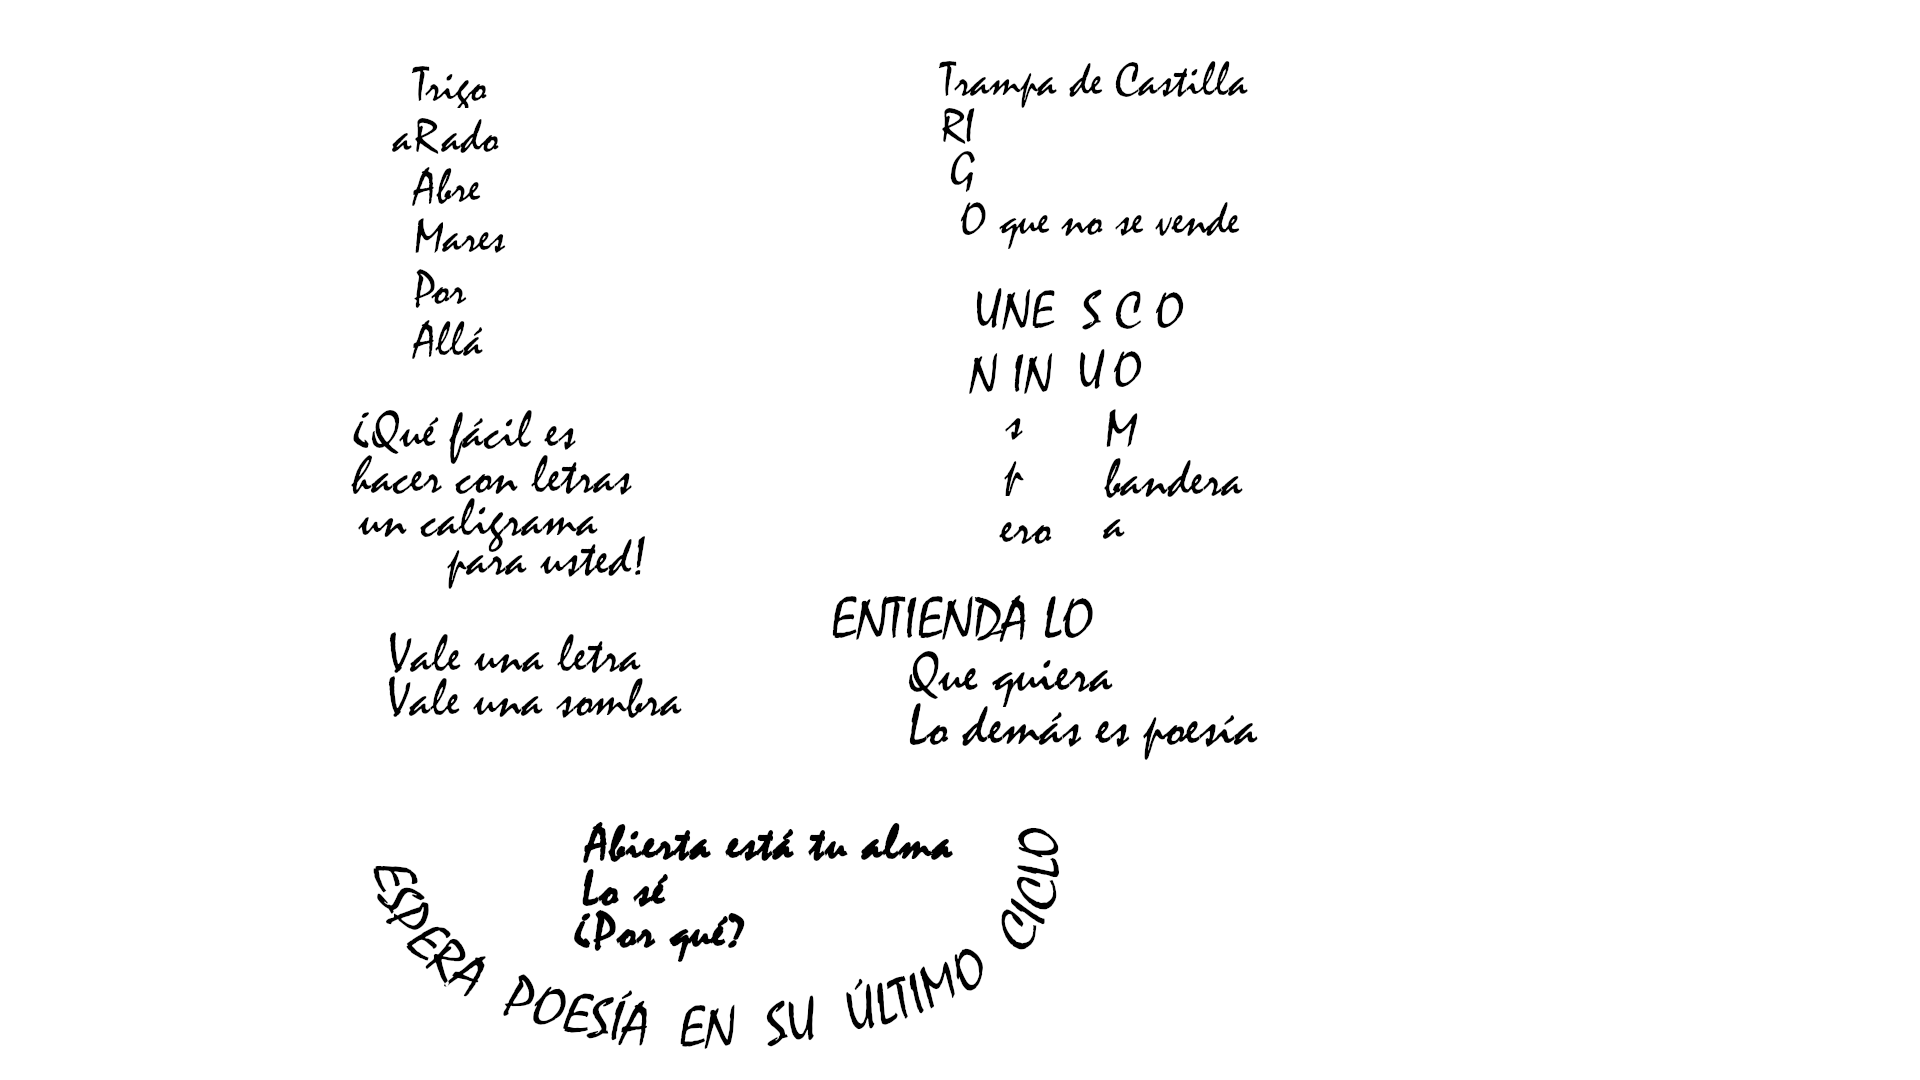 Trigo
aRado
Abre
Mares
Por
Allá
¿Qué fácil es
hacer con letras
un caligrama
para usted!
Vale una letra
Vale una sombra
Trampa de Castilla
RI
G
O que no se vende
UNE S C O
N IN U O
s M
p bandera
ero a
ENTIENDA LO
Que quiera
Lo demás es poesía
Abierta está tu alma
Lo sé
¿Por qué?
ESPERA POESÍA EN SU ÚLTIMO CICLO